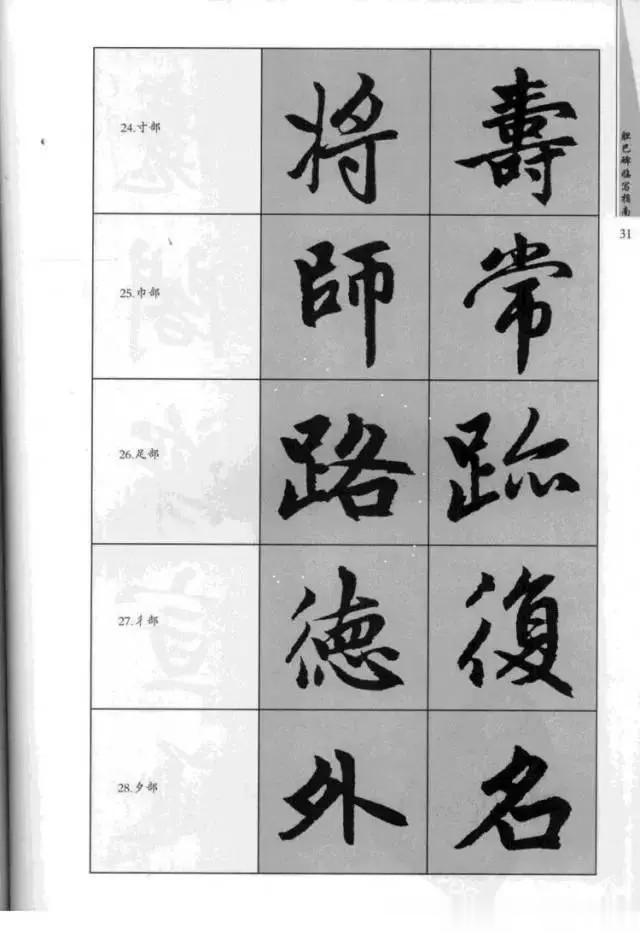 胆巴碑临写指南
31
24.寸部 将 壽
25.巾部 師 常
26.足部 路 跡
27.彳部 德 復
28.夕部 外 名